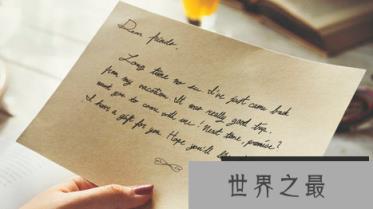 Dear friends,
Long time no see. I've just came back
from my vacation. It was really good trip.
want you to come with me! Next time, promise?
I have a gift for you. Hope you'll
世界之最